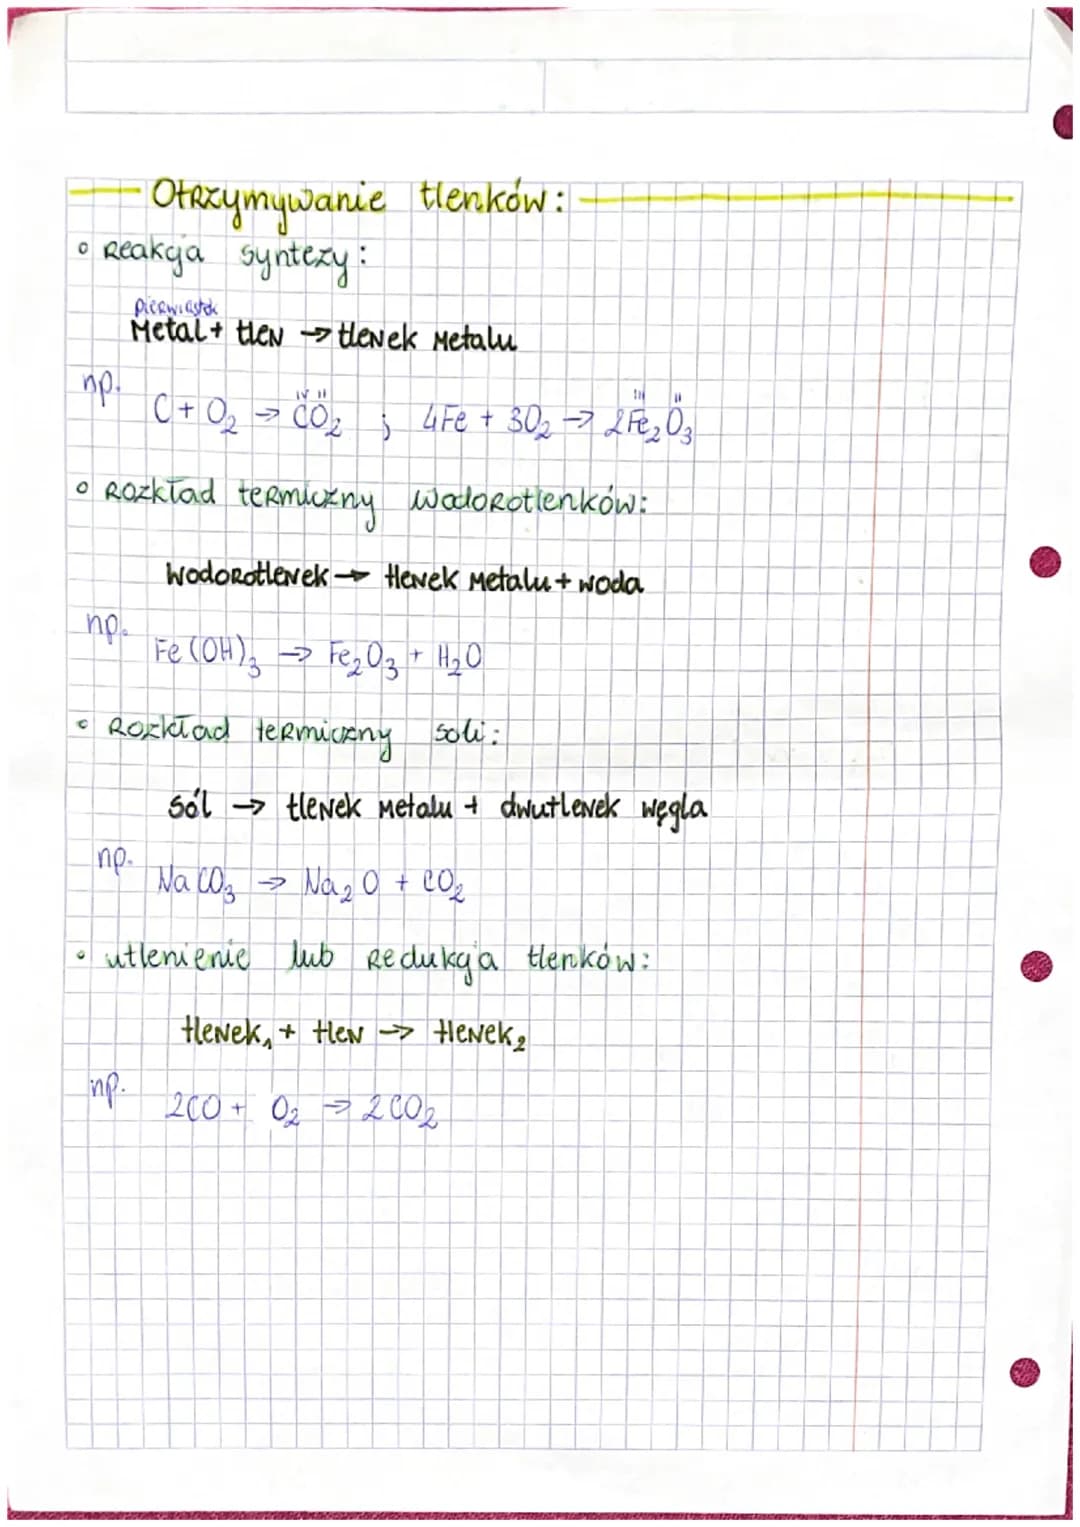 Otrzymywanie tlenków:
• Reakcja syntezy:
pierwiastek
Metal + tlen → tlenek metalu
np.
IV II III II
C + O₂ → CO₂ ; 4Fe + 3O₂ → 2Fe₂O₃
• Rozkład termiczny wodorotlenków:
wodorotlenek → tlenek metalu + woda
np.
Fe(OH)₃ → Fe₂O₃ + H₂O
• Rozkład termiczny soli:
sól → tlenek metalu + dwutlenek węgla
np.
NaCO₃ → Na₂O + CO₂
• utlenienie lub redukcja tlenków:
tlenek₁ + tlen → tlenek₂
np.
2CO + O₂ → 2CO₂